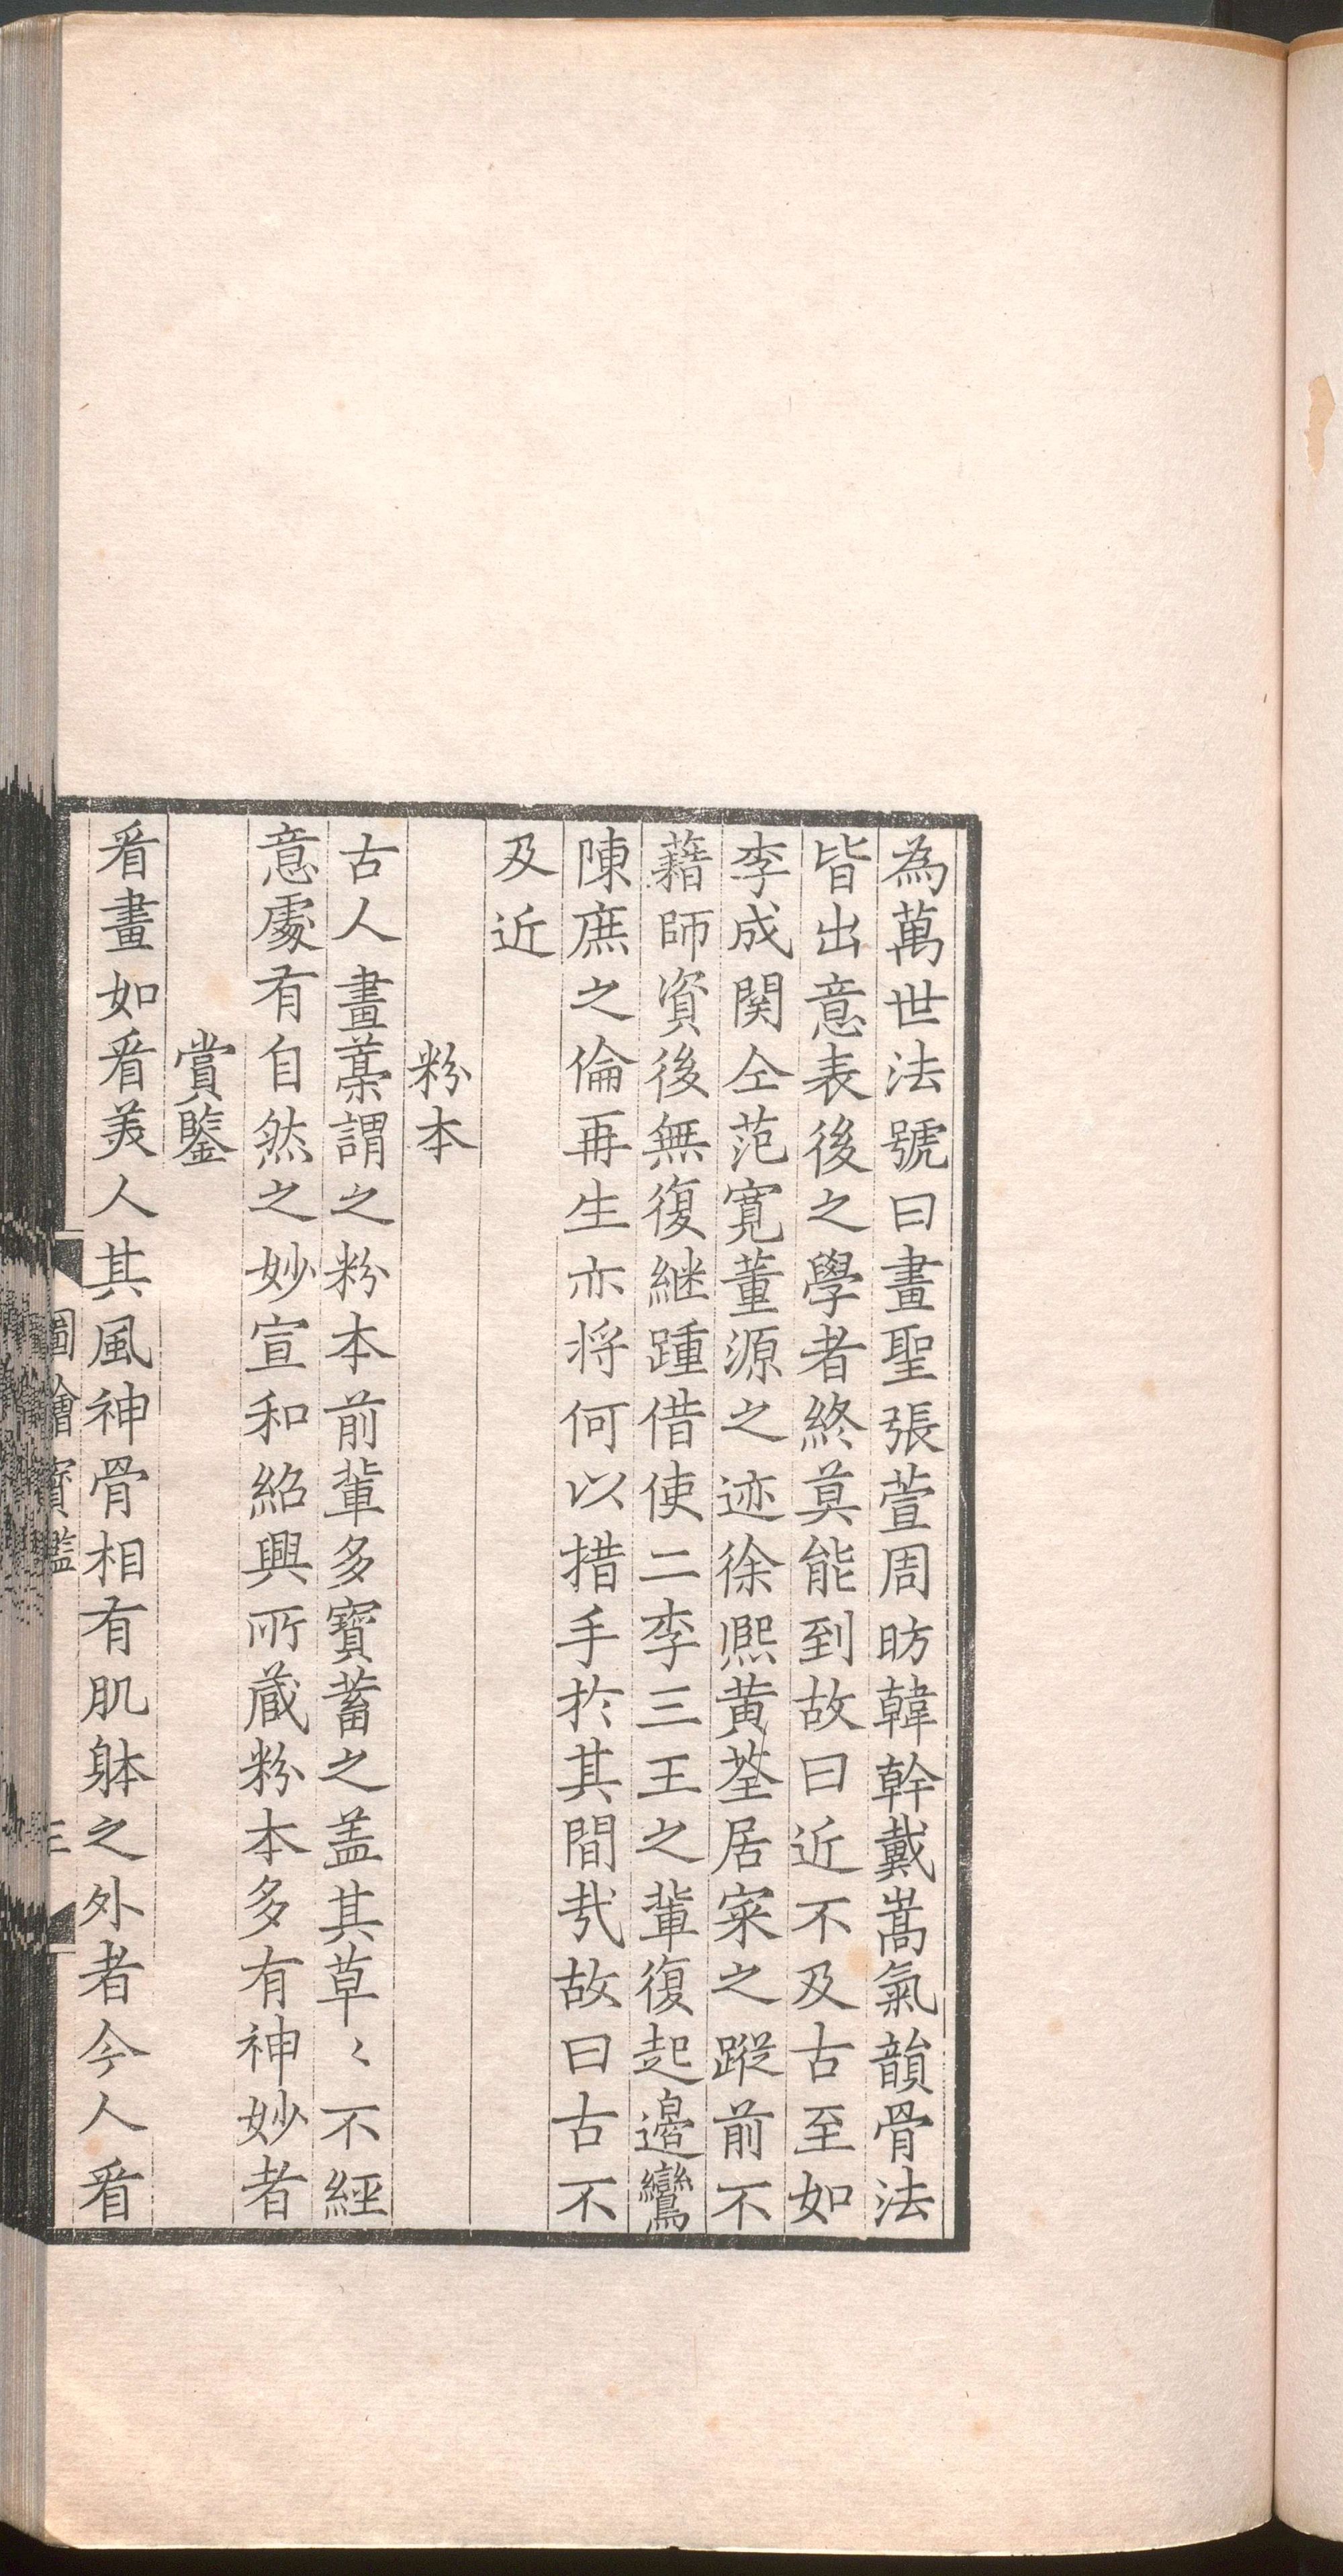 為萬世法號曰畫聖張萱周昉韓幹戴嵩氣韻骨法
皆出意表後之學者終莫能到故曰近不及古至如
李成関仝范寛董源之迹徐熈黄荃居寀之蹤前不
藉師資後無復継踵借使二李三王之輩復起邉鸞
陳庶之倫再生亦将何以措手於其間㢤故曰古不
及近
粉本
古人畫藁謂之粉本前輩多寳蓄之盖其草〻不經
意處有自然之妙宣和紹興所蔵粉本多有神妙者
賞鑒
看畫如看美人其風神骨相有肌躰之外者今人看
圖繪寳鑑
三